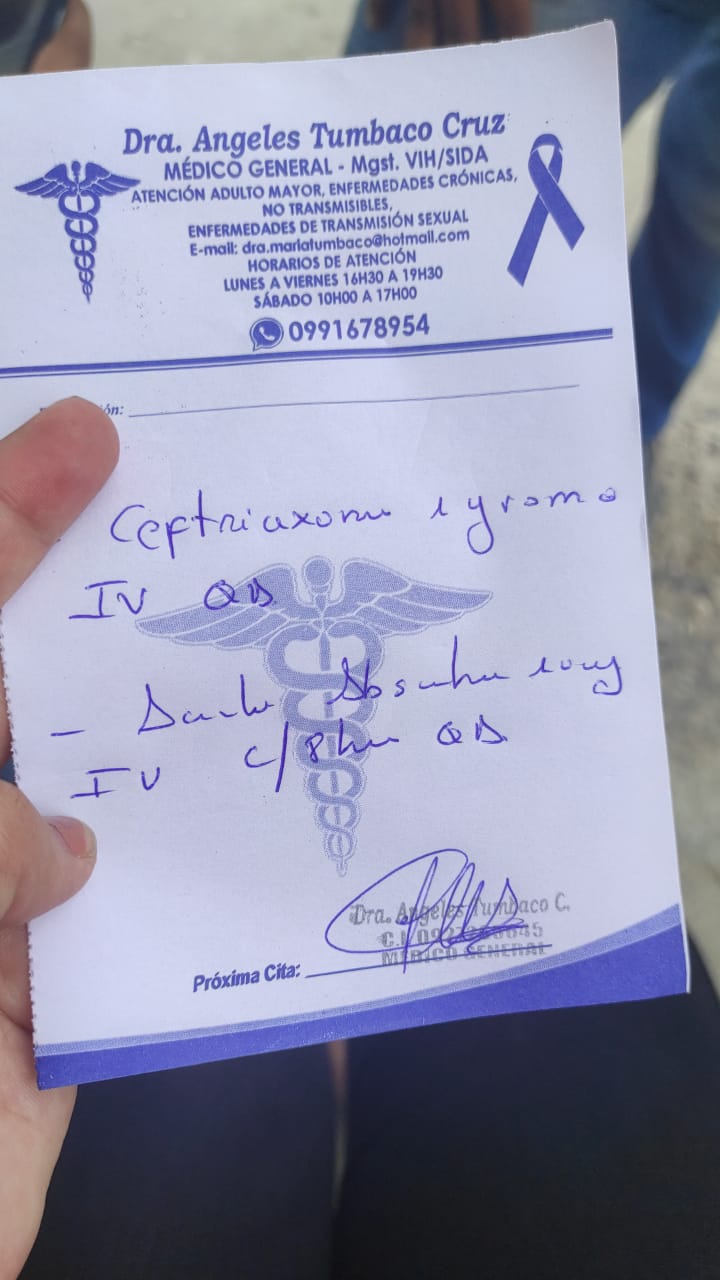 Dra. Angeles Tumbaco Cruz
MÉDICO GENERAL - Mgst. VIH/SIDA
ATENCIÓN ADULTO MAYOR, ENFERMEDADES CRÓNICAS,
NO TRANSMISIBLES,
ENFERMEDADES DE TRANSMISIÓN SEXUAL
E-mail: dra.mariatumbaco@hotmail.com
HORARIOS DE ATENCIÓN
LUNES A VIERNES 16H30 A 19H30
SÁBADO 10H00 A 17H00
0991678954
ón:
Ceftriaxona 1 gramo
IV QD
-
IV c/8h QD
Dra. Angeles Tumbaco C.
MÉDICO GENERAL
Próxima Cita: